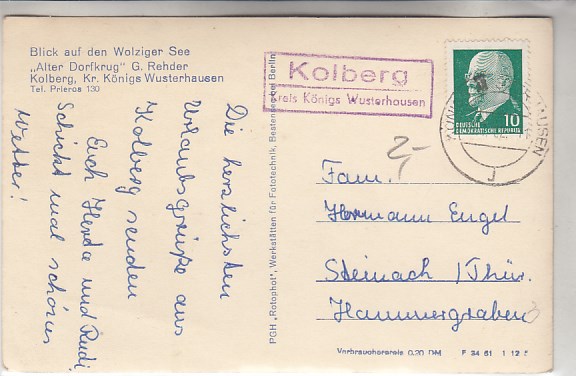 Blick auf den Wolziger See
„Alter Dorfkrug" G. Rehder
Kolberg, Kr. Königs Wusterhausen
Tel. Prieros 130
Die herzlichsten
Urlaubsgrüße aus
Kolberg senden
Euch Herta und Rudi
Schickt mal schönes
Wetter!
PGH „Rotophot", Werkstätten für Fototechnik, Bestensee bei Berlin
Kolberg
Kreis Königs Wusterhausen
10
DEUTSCHE
DEMOKRATISCHE REPUBLIK
HAUSEN
2,-
Fam.
Hermann Engel
Steinach / Thür.
Hammergraben
Verbraucherpreis 0,20 DM
F 34 61 1 12